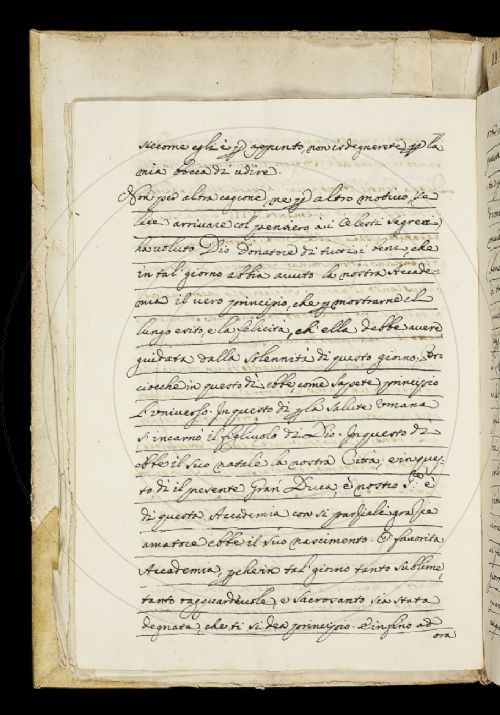 siccome egli è p appunto, non isdegnerete p la
mia bocca di udire.
Non per altra cagione, ne p altro motivo, se
lece arrivare col pensiero ài Celesti segreti
hà voluto Dio Donatore di tutti i beni, che
in tal giorno abbia avuto la nostra Accade=
mia il vero principio, che p mostrarne el
lungo esito, e la felicità, ch' ella debbe avere
guidata dalla solennità di questo giorno,
ciocche in questo dì ebbe, come sapete, principio
l'Universo. In questo dì p la salute umana
s' incarnò il figliuolo di Dio. In questo dì
ebbe il suo natale la nostra Città, e in ques-
to dì il presente Gran Duca, e nostro S.re è
di questa Accademia con si parziale
amatore ebbe il suo nascimento. O favorita
Accademia, p che in tal giorno tanto sublime,
tanto ragguardevole, e sacrosanto sia stata
degnata, che ti si dea principio. E infino ad
ora